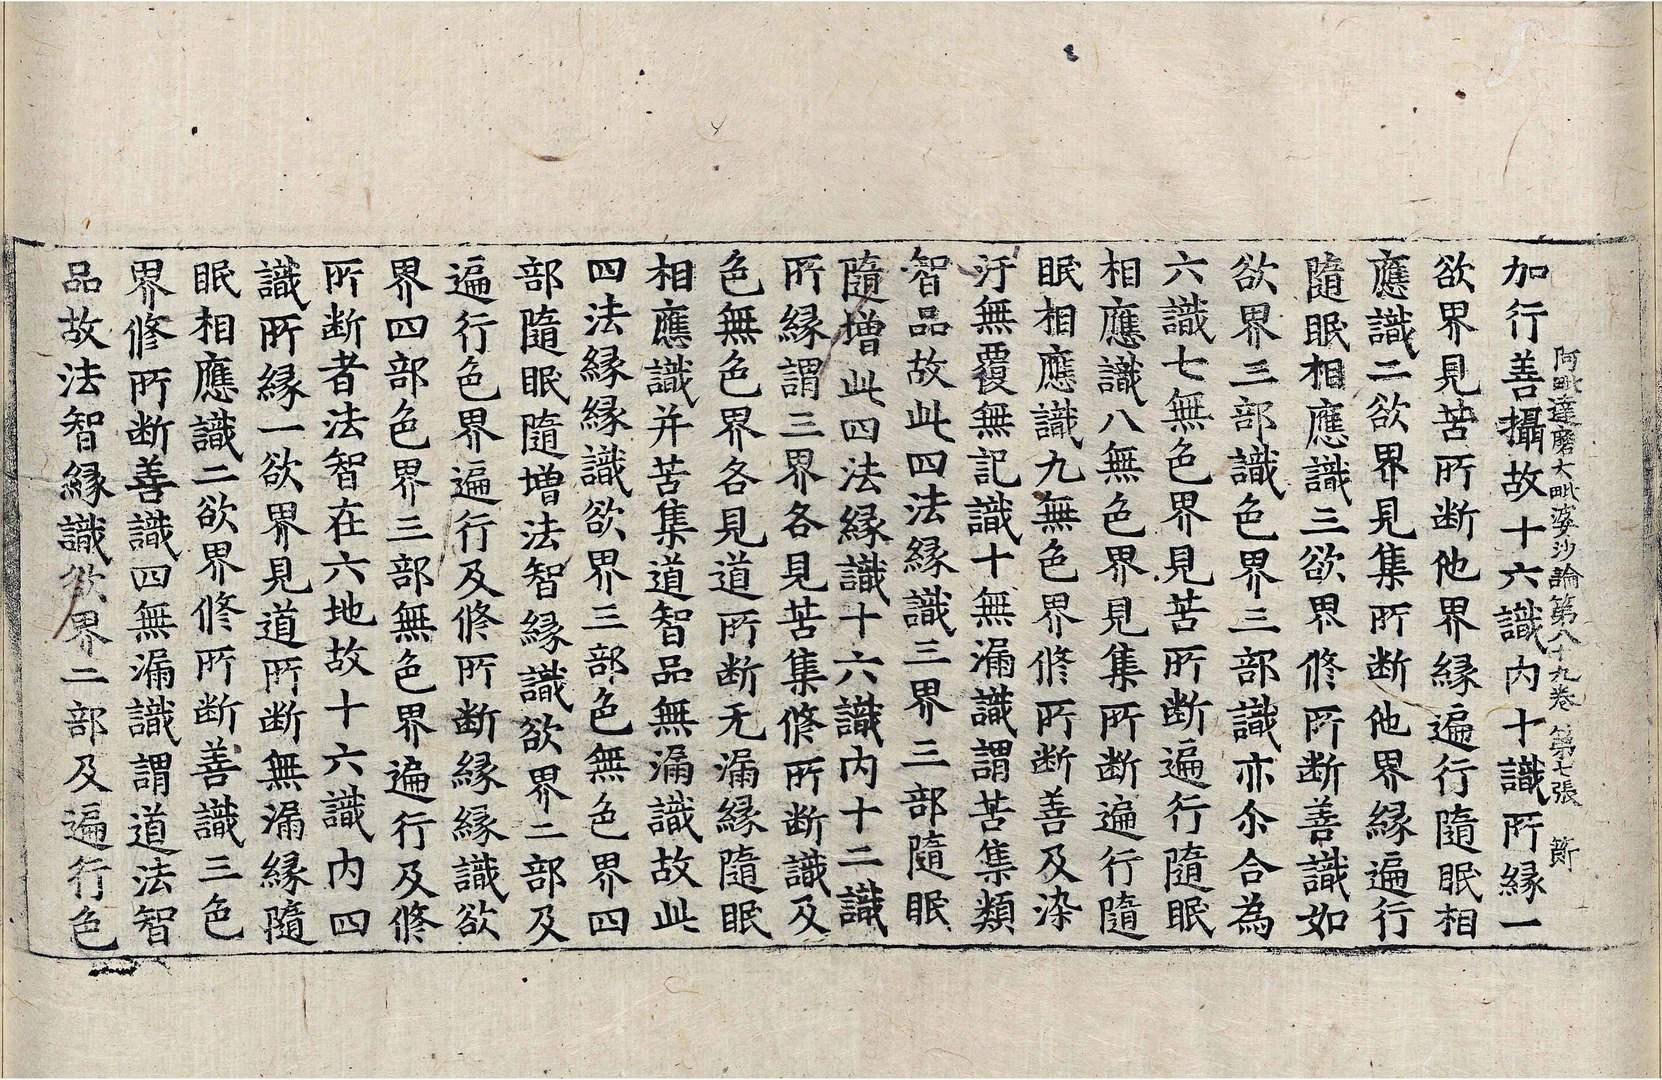 阿毗達磨大毗婆沙論第八十九卷 第七張
加行善攝故十六識內十識所緣一
欲界見苦所断他界緣遍行隨眠相
應識二欲界見集所断他界緣遍行
隨眠相應識三欲界修所断善識如
欲界三部識色界三部識亦尒合為
六識七無色界見苦所断遍行隨眠
相應識八無色界見集所断遍行隨
眠相應識九無色界修所断善及染
汙無覆無記識十無漏識謂苦集類
智品故此四法緣識三界三部隨眠
隨增此四法緣識十六識內十二識
所緣謂三界各見苦集修所断識及
色無色界各見道所断无漏緣隨眠
相應識并苦集道智品無漏識故此
四法緣緣識欲界三部色無色界四
部隨眠隨增法智緣識欲界二部及
遍行色界遍行及修所断緣緣識欲
界四部色界三部無色界遍行及修
所断者法智在六地故十六識內四
識所緣一欲界見道所断無漏緣隨
眠相應識二欲界修所断善識三色
界修所断善識四無漏識謂道法智
品故法智緣識欲界二部及遍行色